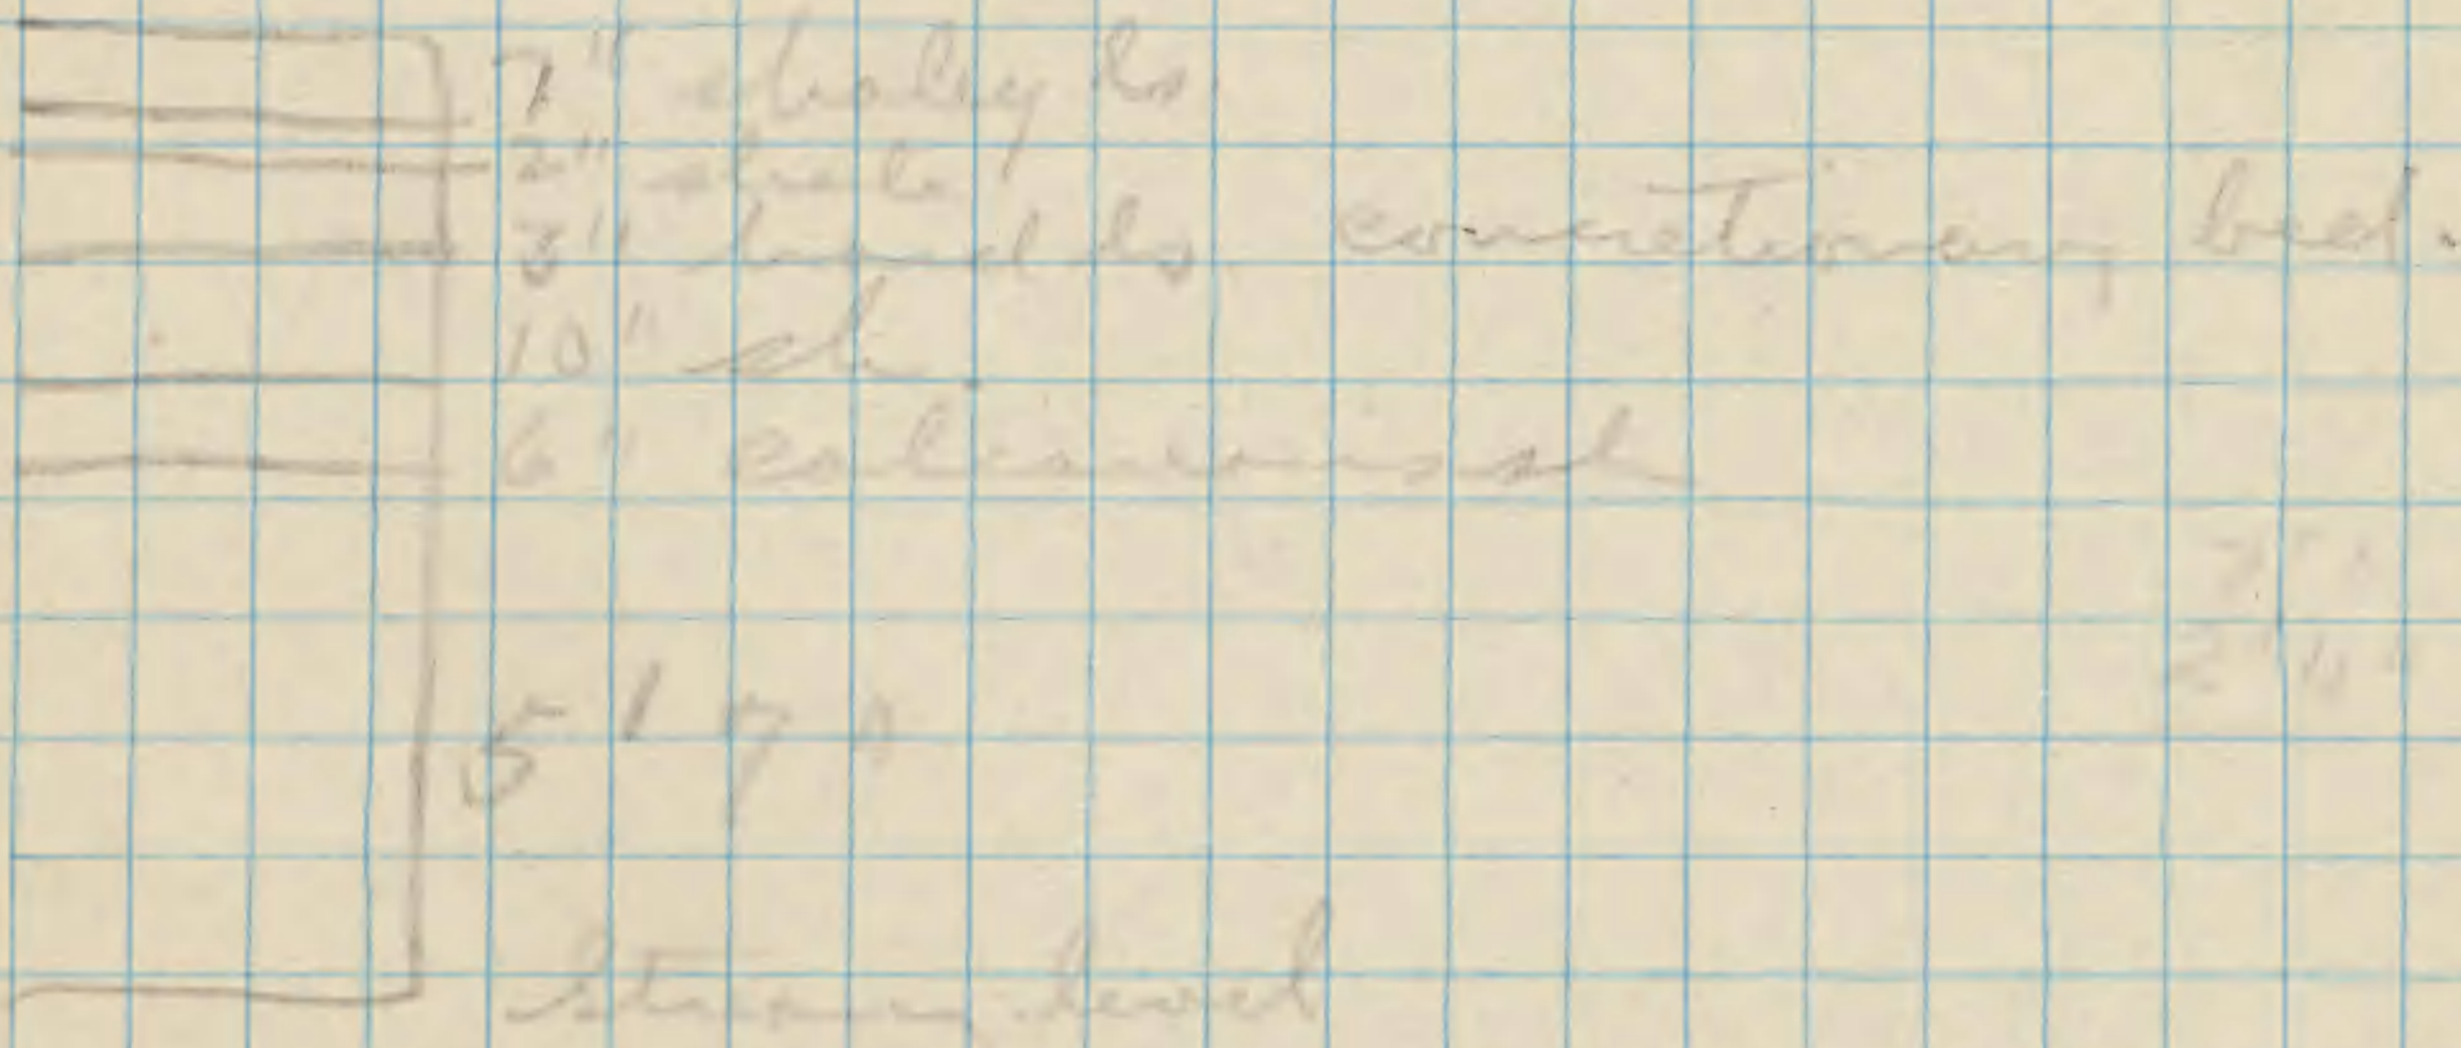 7" shaley ls
2" shale
3" hard ls concretionary bed.
10" sh.
6" calcareous sh
5' 7"
stream level